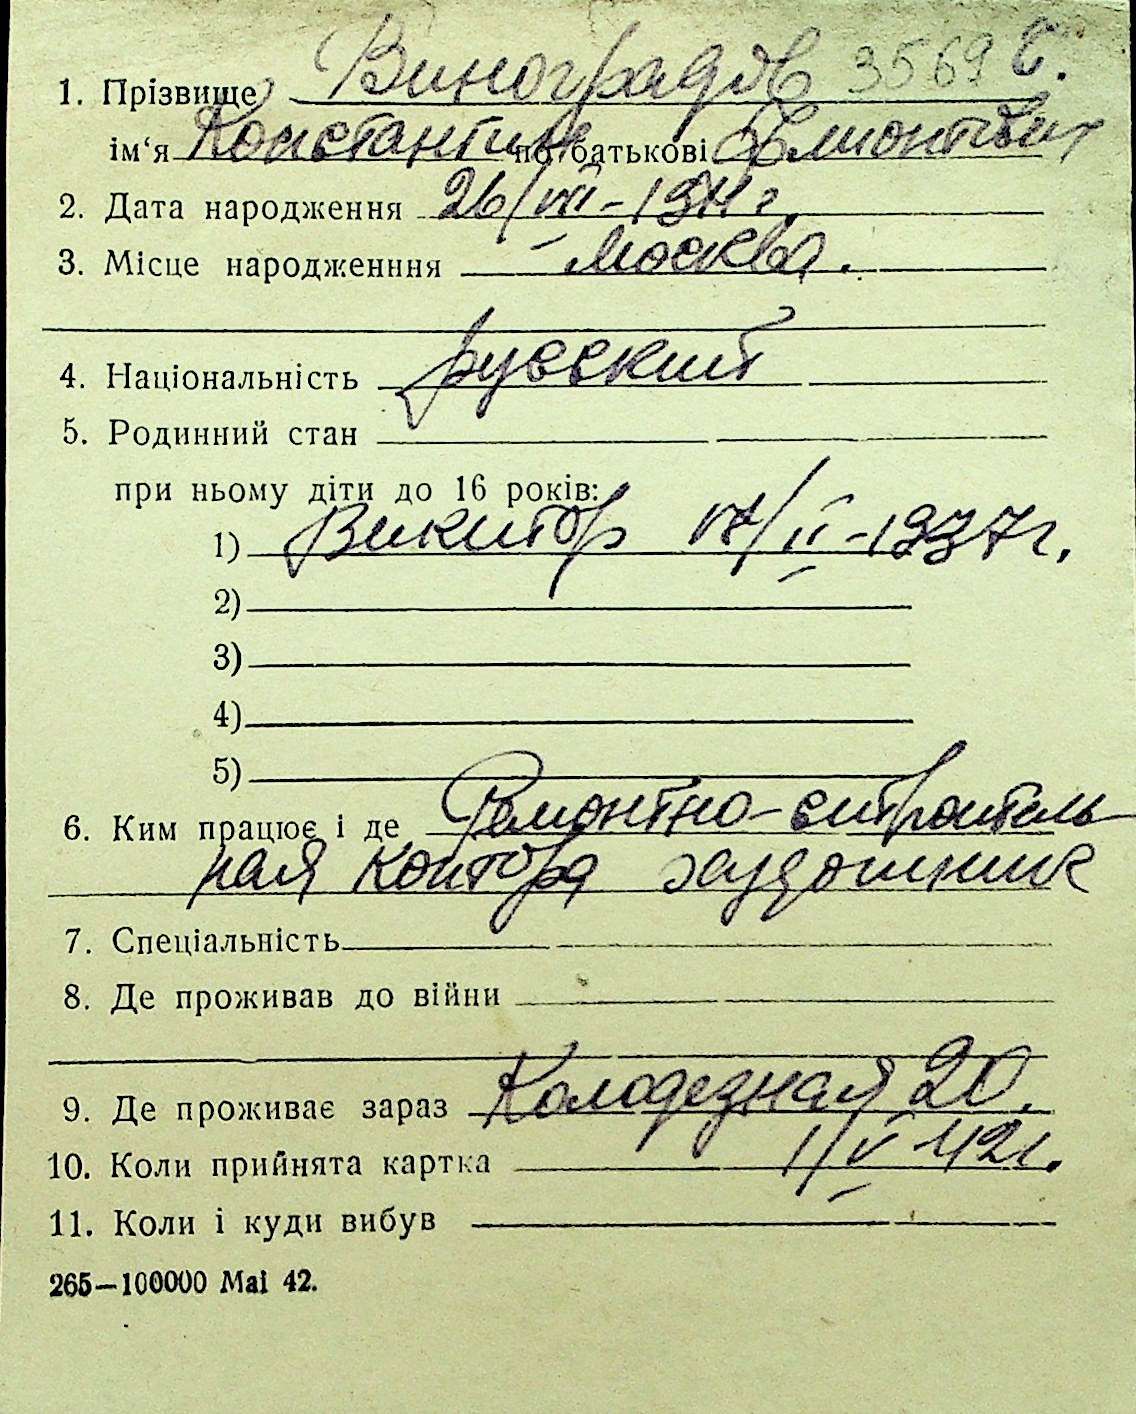 1. Прізвище Виноградов 3569 С.
ім‘я Константин по батькові
2. Дата народження 26/VII-1911 г.
3. Місце народженння Москва.
4. Національність русский
5. Родинний стан
при ньому діти до 16 років:
1) Викитор 17/II-1937 г.
2)
3)
4)
5)
6. Ким працює і де Ремонтно-ситроитель
ная контора художник
7. Спеціальність
8. Де проживав до війни
9. Де проживає зараз Колодезная 20.
10. Коли прийнята картка 1/V 42 г.
11. Коли і куди вибув
265—100000 Mai 42.